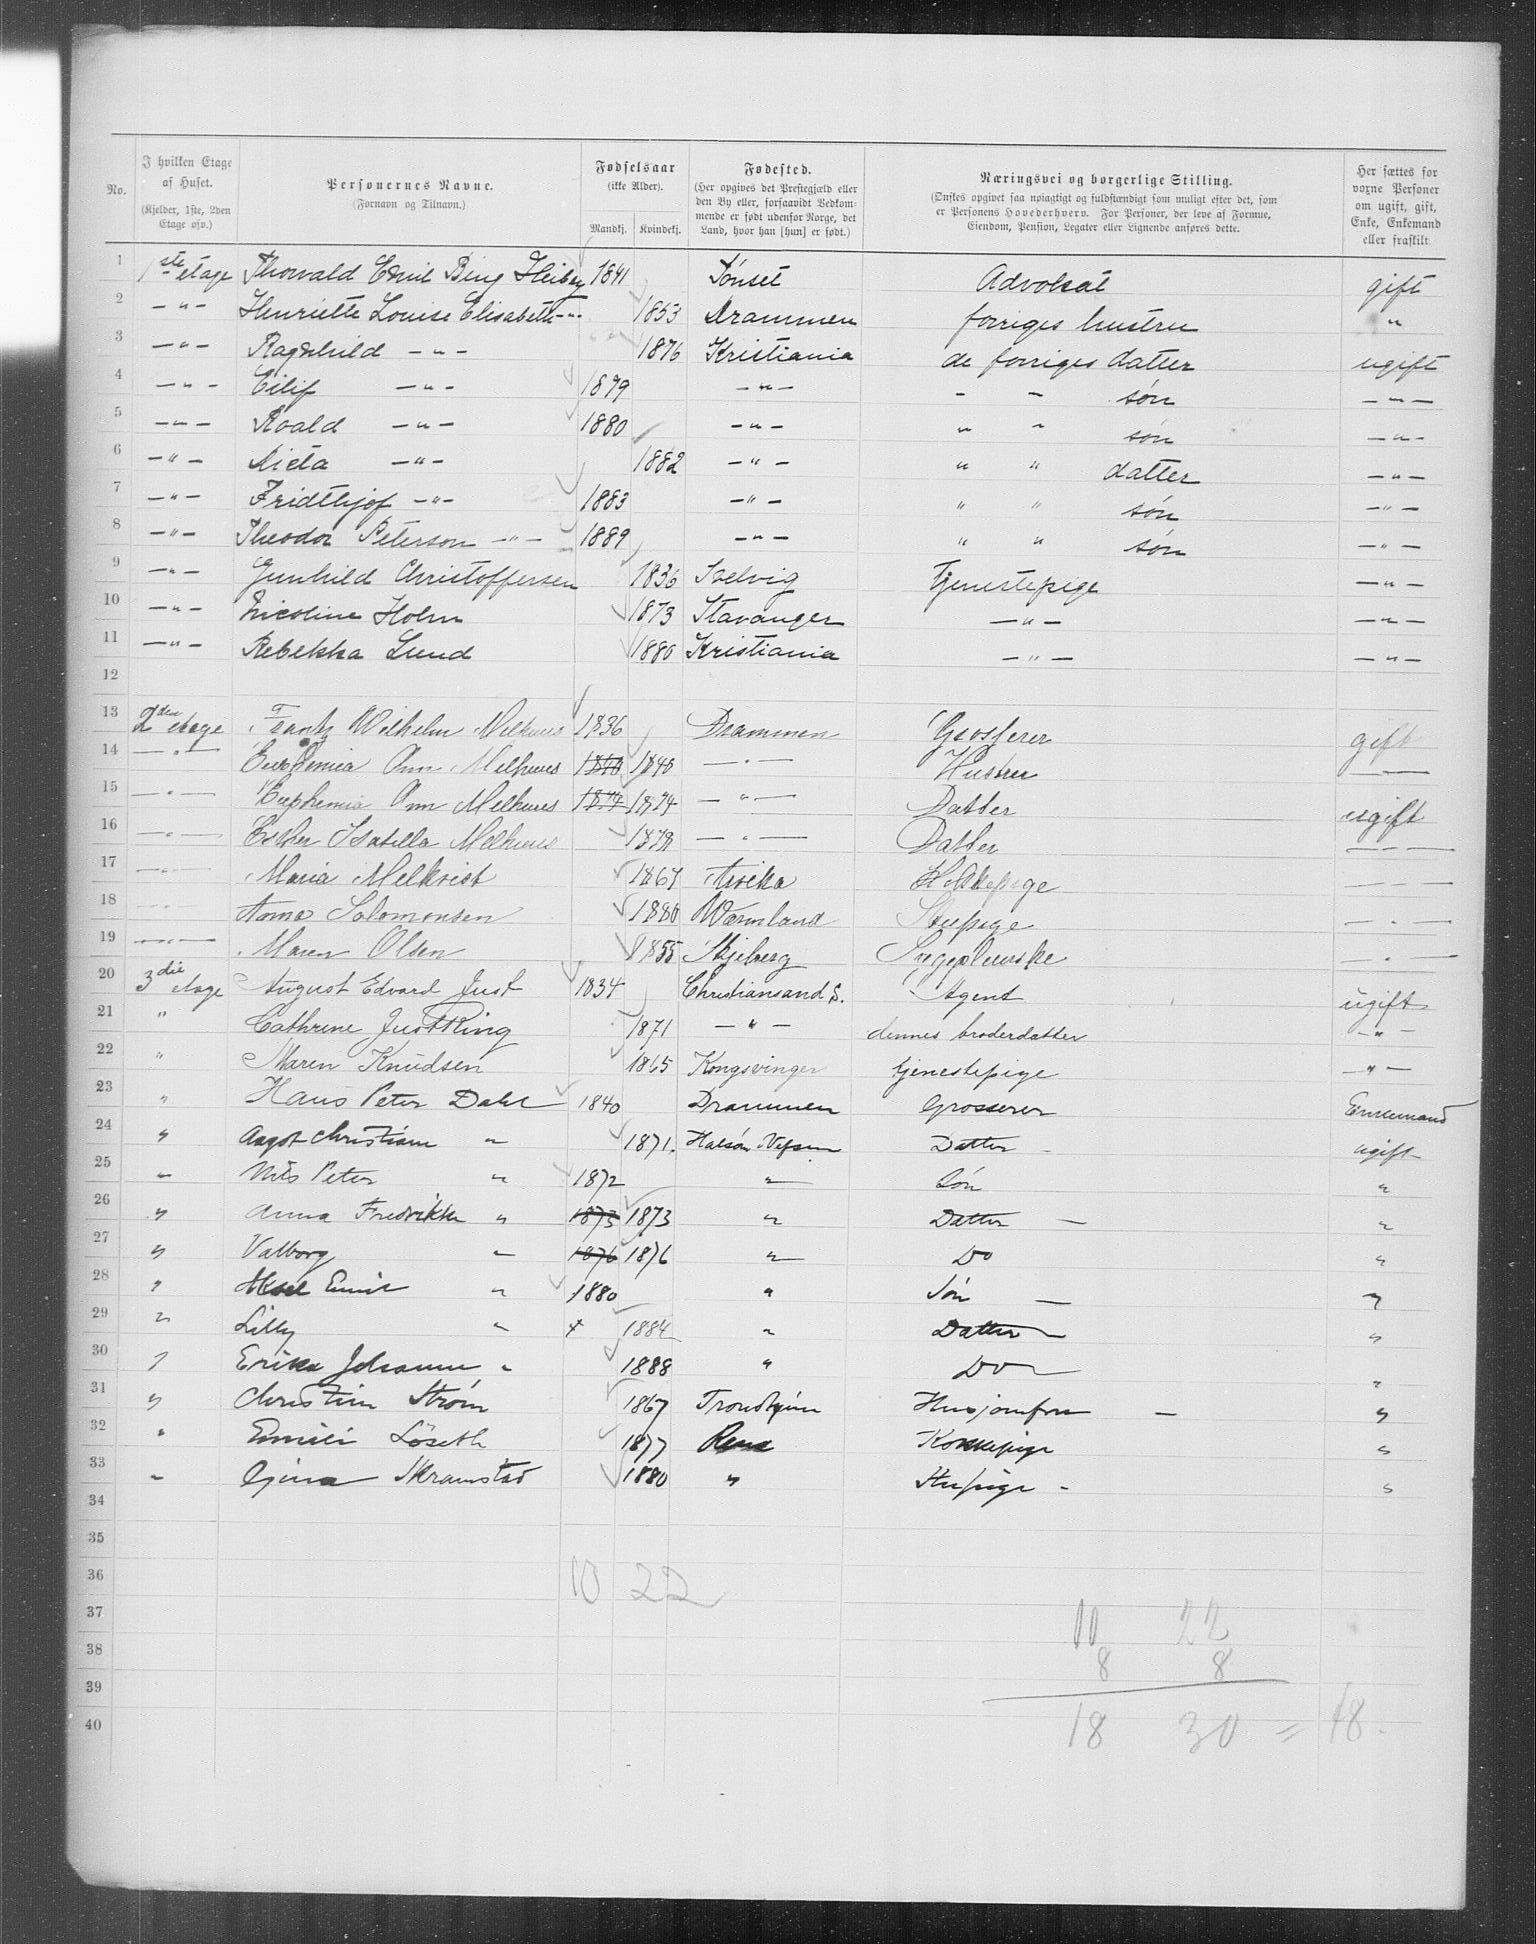 No.
I hvilken Etage af Huset.
(Kjelder, 1ste, 2den Etage osv.)
Personernes Navne.
(Fornavn og Tilnavn.)
Fødselsaar
(ikke Alder).
Mandkj. Kvindekj.
Fødested.
(Her opgives det Prestegjæld eller den By eller, forsaavidt Vedkommende er født udenfor Norge, det Land, hvor han [hun] er født.)
Næringsvei og borgerlige Stilling.
(Ønskes opgivet saa nøiagtigt og fuldstændigt som muligt efter det, som er Personens Hovederhverv. For Personer, der leve af Formue, Eiendom, Pension, Legater eller Lignende anføres dette.
Her sættes for voxne Personer om ugift, gift, Enke, Enkemand eller fraskilt
1 1ste etage Thorvald Emil Bing Heiberg 1841 Tønset Advokat gift
2 -"- Henriette Louise Elisabeth -"- 1853 Drammen forriges hustru "
3 -"- Ragnhild -"- 1876 Kristiania de forriges datter ugift
4 -"- Eilif -"- 1879 -"- " " søn -"-
5 -"- Roald -"- 1880 -"- " " søn -"-
6 -"- -"- 1882 -"- " " datter -"-
7 -"- Fridthjof -"- 1883 -"- " " søn -"-
8 -"- Theodor Peterson -"- 1889 -"- " " søn -"-
9 -"- Gunhild Christoffersen 1836 Svelvig Tjenestepige -"-
10 -"- Nicoline Holm 1873 Stavanger -"- -"-
11 -"- Rebekka Lund 1880 Kristiania -"- -"-
12
13 2den etage Frantz Wilhelm Melhuus 1836 Drammen Grosserer gift
14 -"- Euphemia Ann Melhuus 1840 1840 -"- Hustru -"-
15 -"- Euphemia Ann Melhuus 1874 1874 -"- Datter ugift
16 -"- Esther Isabella Melhuus 1878 -"- Datter -"-
17 -"- Maria Melkvist 1867 Arvika Kokkepige -"-
18 -"- Anna Salomonsen 1880 Wærmland Stuepige -"-
19 -"- Maren Olsen 1855 Skjeberg Sygepleierske -"-
20 3die etage August Edvard Just 1834 Christiansand S. Agent ugift
21 " Cathrine Just Ring 1871 -"- dennes broderdatter -"-
22 " Maren Knudsen 1865 Kongsvinger tjenestepige -"-
23 " Hans Peter Dahl 1840 Drammen Grosserer Enkemand
24 " Aagot Christiane " 1871. Halsøen Vefsen Datter - ugift
25 " Nils Peter " 1872 " Søn "
26 " Anna Fredrikke " 1873 1873 " Datter - "
27 " Valborg " 1876 1876 " Do "
28 " Aksel Emil " 1880 " Søn - "
29 " Lilly " 1884 " Datter - "
30 " Erika Johanne " 1888 " Do - "
31 " Christine Strøm 1867 Trondhjem Husjomfru - "
32 " Emilie Løseth 1877 Rena Kokkepige "
33 " Gjina Skramstad 1880 " Stupige - "
34
35
36 10 22
37 10 22
38 8 8
39
40 18 30 = 48.